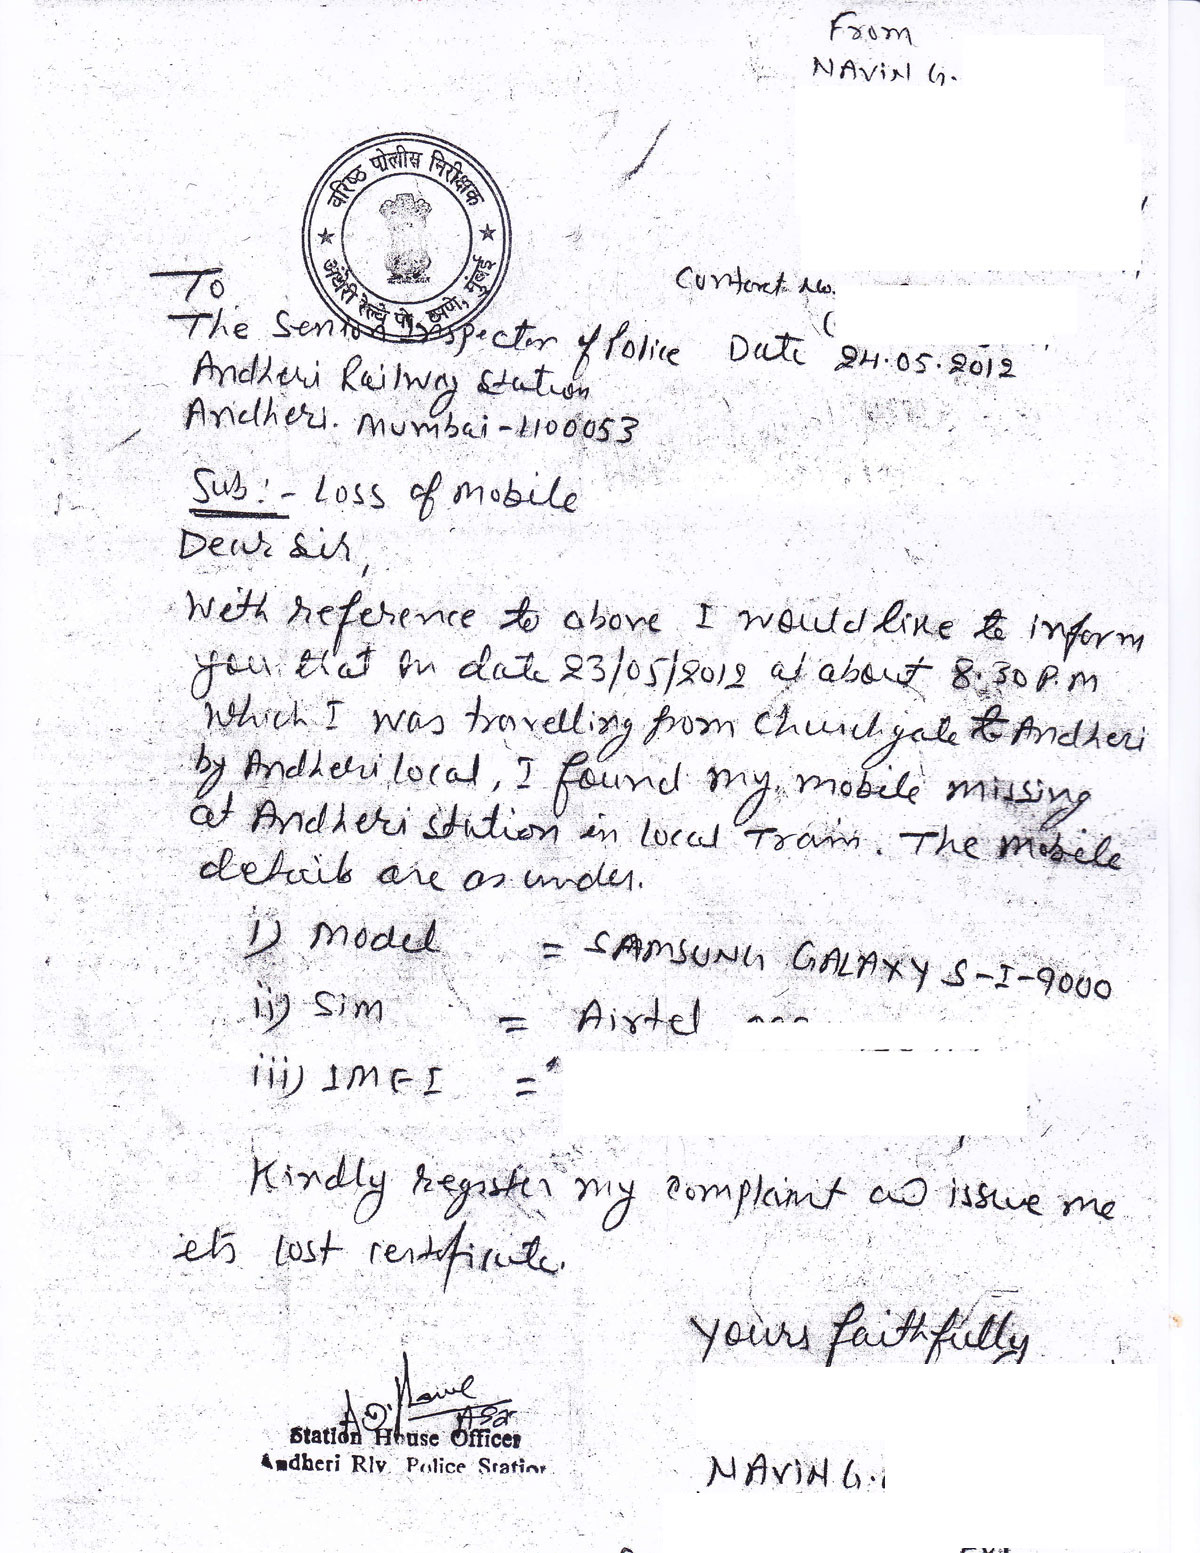 From
NAViN G.
वरिष्ठ पोलीस निरीक्षक
अंधेरी रेल्वे पो. ठाणे, मुंबई
Contact No.
To
The Senior Inspector of Police Date 24.05.2012
Andheri Railway Station
Andheri. Mumbai-400053
Sub:- Loss of mobile
Dear Sir,
With reference to above I would like to inform
you that on date 23/05/2012 at about 8.30 P.M
Which I was travelling from Churchgate to Andheri
by Andheri local, I found my mobile missing
at Andheri Station in local Train. The mobile
details are as under.
i) Model = SAMSUNG GALAXY S-I-9000
ii) Sim = Airtel
iii) IMEI =
Kindly register my complaint and issue me
its lost certificate.
Yours faithfully
Station House Officer
Andheri Rly. Police Station
NAViN G.